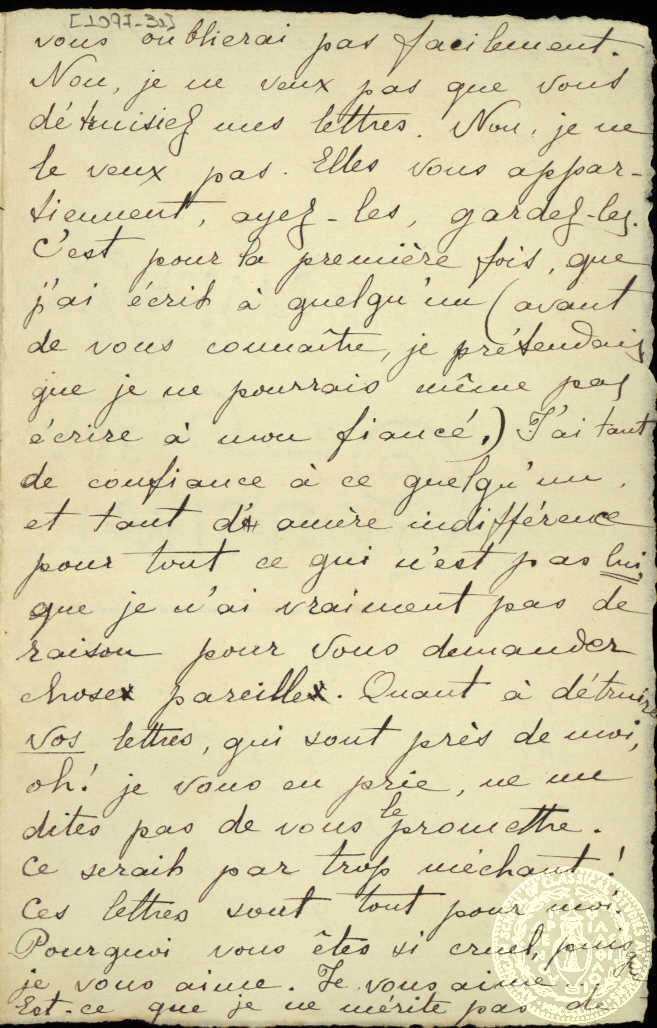 vous oublierai pas facilement.
Non, je ne veux pas que vous
détruisiez mes lettres. Non, je ne
le veux pas. Elles vous appar-
tiennent, ayez-les, gardez-les.
C'est pour la première fois, que
j'ai écrit à quelqu'un (avant
de vous connaître, je prétendais
que je ne pourrais même pas
écrire à mon fiancé.) J'ai tant
de confiance à ce quelqu'un,
et tant d'amère indifférence
pour tout ce qui n'est pas lui,
que je n'ai vraiment pas de
raison pour vous demander
chose pareille. Quant à détruire
vos lettres, qui sont près de moi,
oh! je vous en prie, ne me
dites pas de vous le promettre.
Ce serait par trop méchant!
Ces lettres sont tout pour moi.
Pourquoi vous êtes si cruel, puisq
je vous aime. Je vous aime...
Est-ce que je ne mérite pas de